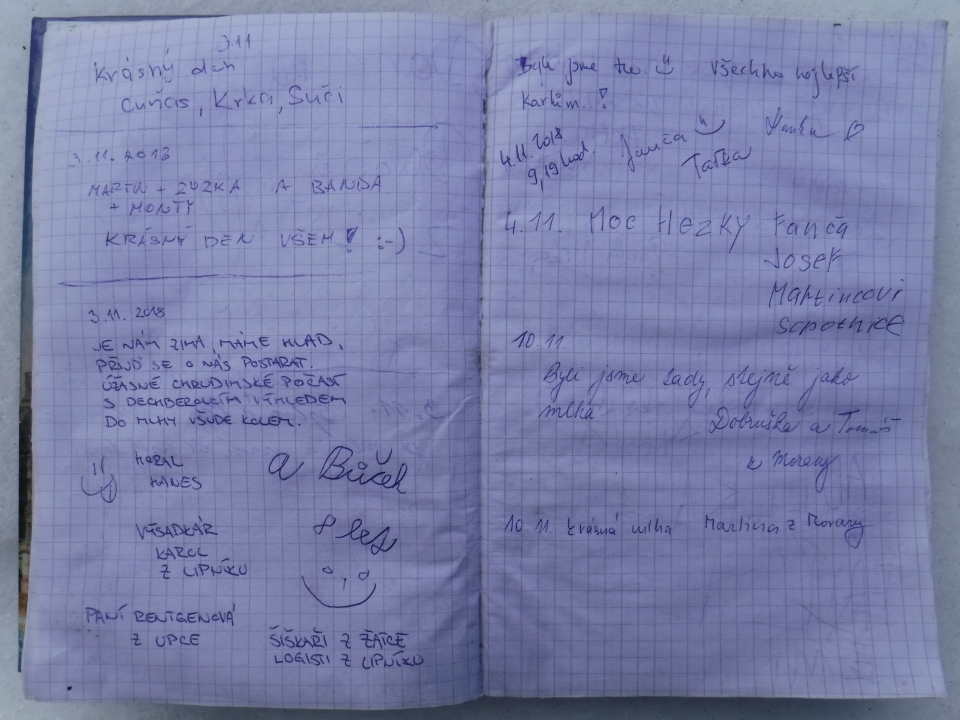 3.11
Krásný den
Cuřas, Krka, Suči
3.11.2018
MARTIN + ZUZKA A BANDA
+ MONTY
KRÁSNÝ DEN VŠEM! :-)
3.11.2018
JE NÁM ZIMA, MÁME HLAD,
PŘIJĎ SE O NÁS POSTARAT.
ÚŽASNÉ CHRUDIMSKÉ POČASÍ
S DECHBEROUCÍM VÝHLEDEM
DO MLHY VŠUDE KOLEM.
HORAL
HANES
a Bůček
VÝSADKÁR
KAROL
Z LIPNÍKU
8 let
PANÍ RENTGENOVÁ
Z UPCE
ŠIŠKAŘI Z ŽATCE
LOGISTI Z LIPNÍKU
Byli jsme tu Všechno nejlepší
Karlím!
4.11.2018
9,19 hod.
Janča Lenka
Taťka
4.11. MOC HEZKY Fanča
Josef
Martincovi
Sopotnice
10.11
Byli jsme tady, stejně jako
mlha
Dobruška a Tomáš
z Moravy
10.11. krásná mlha Martina z Moravy